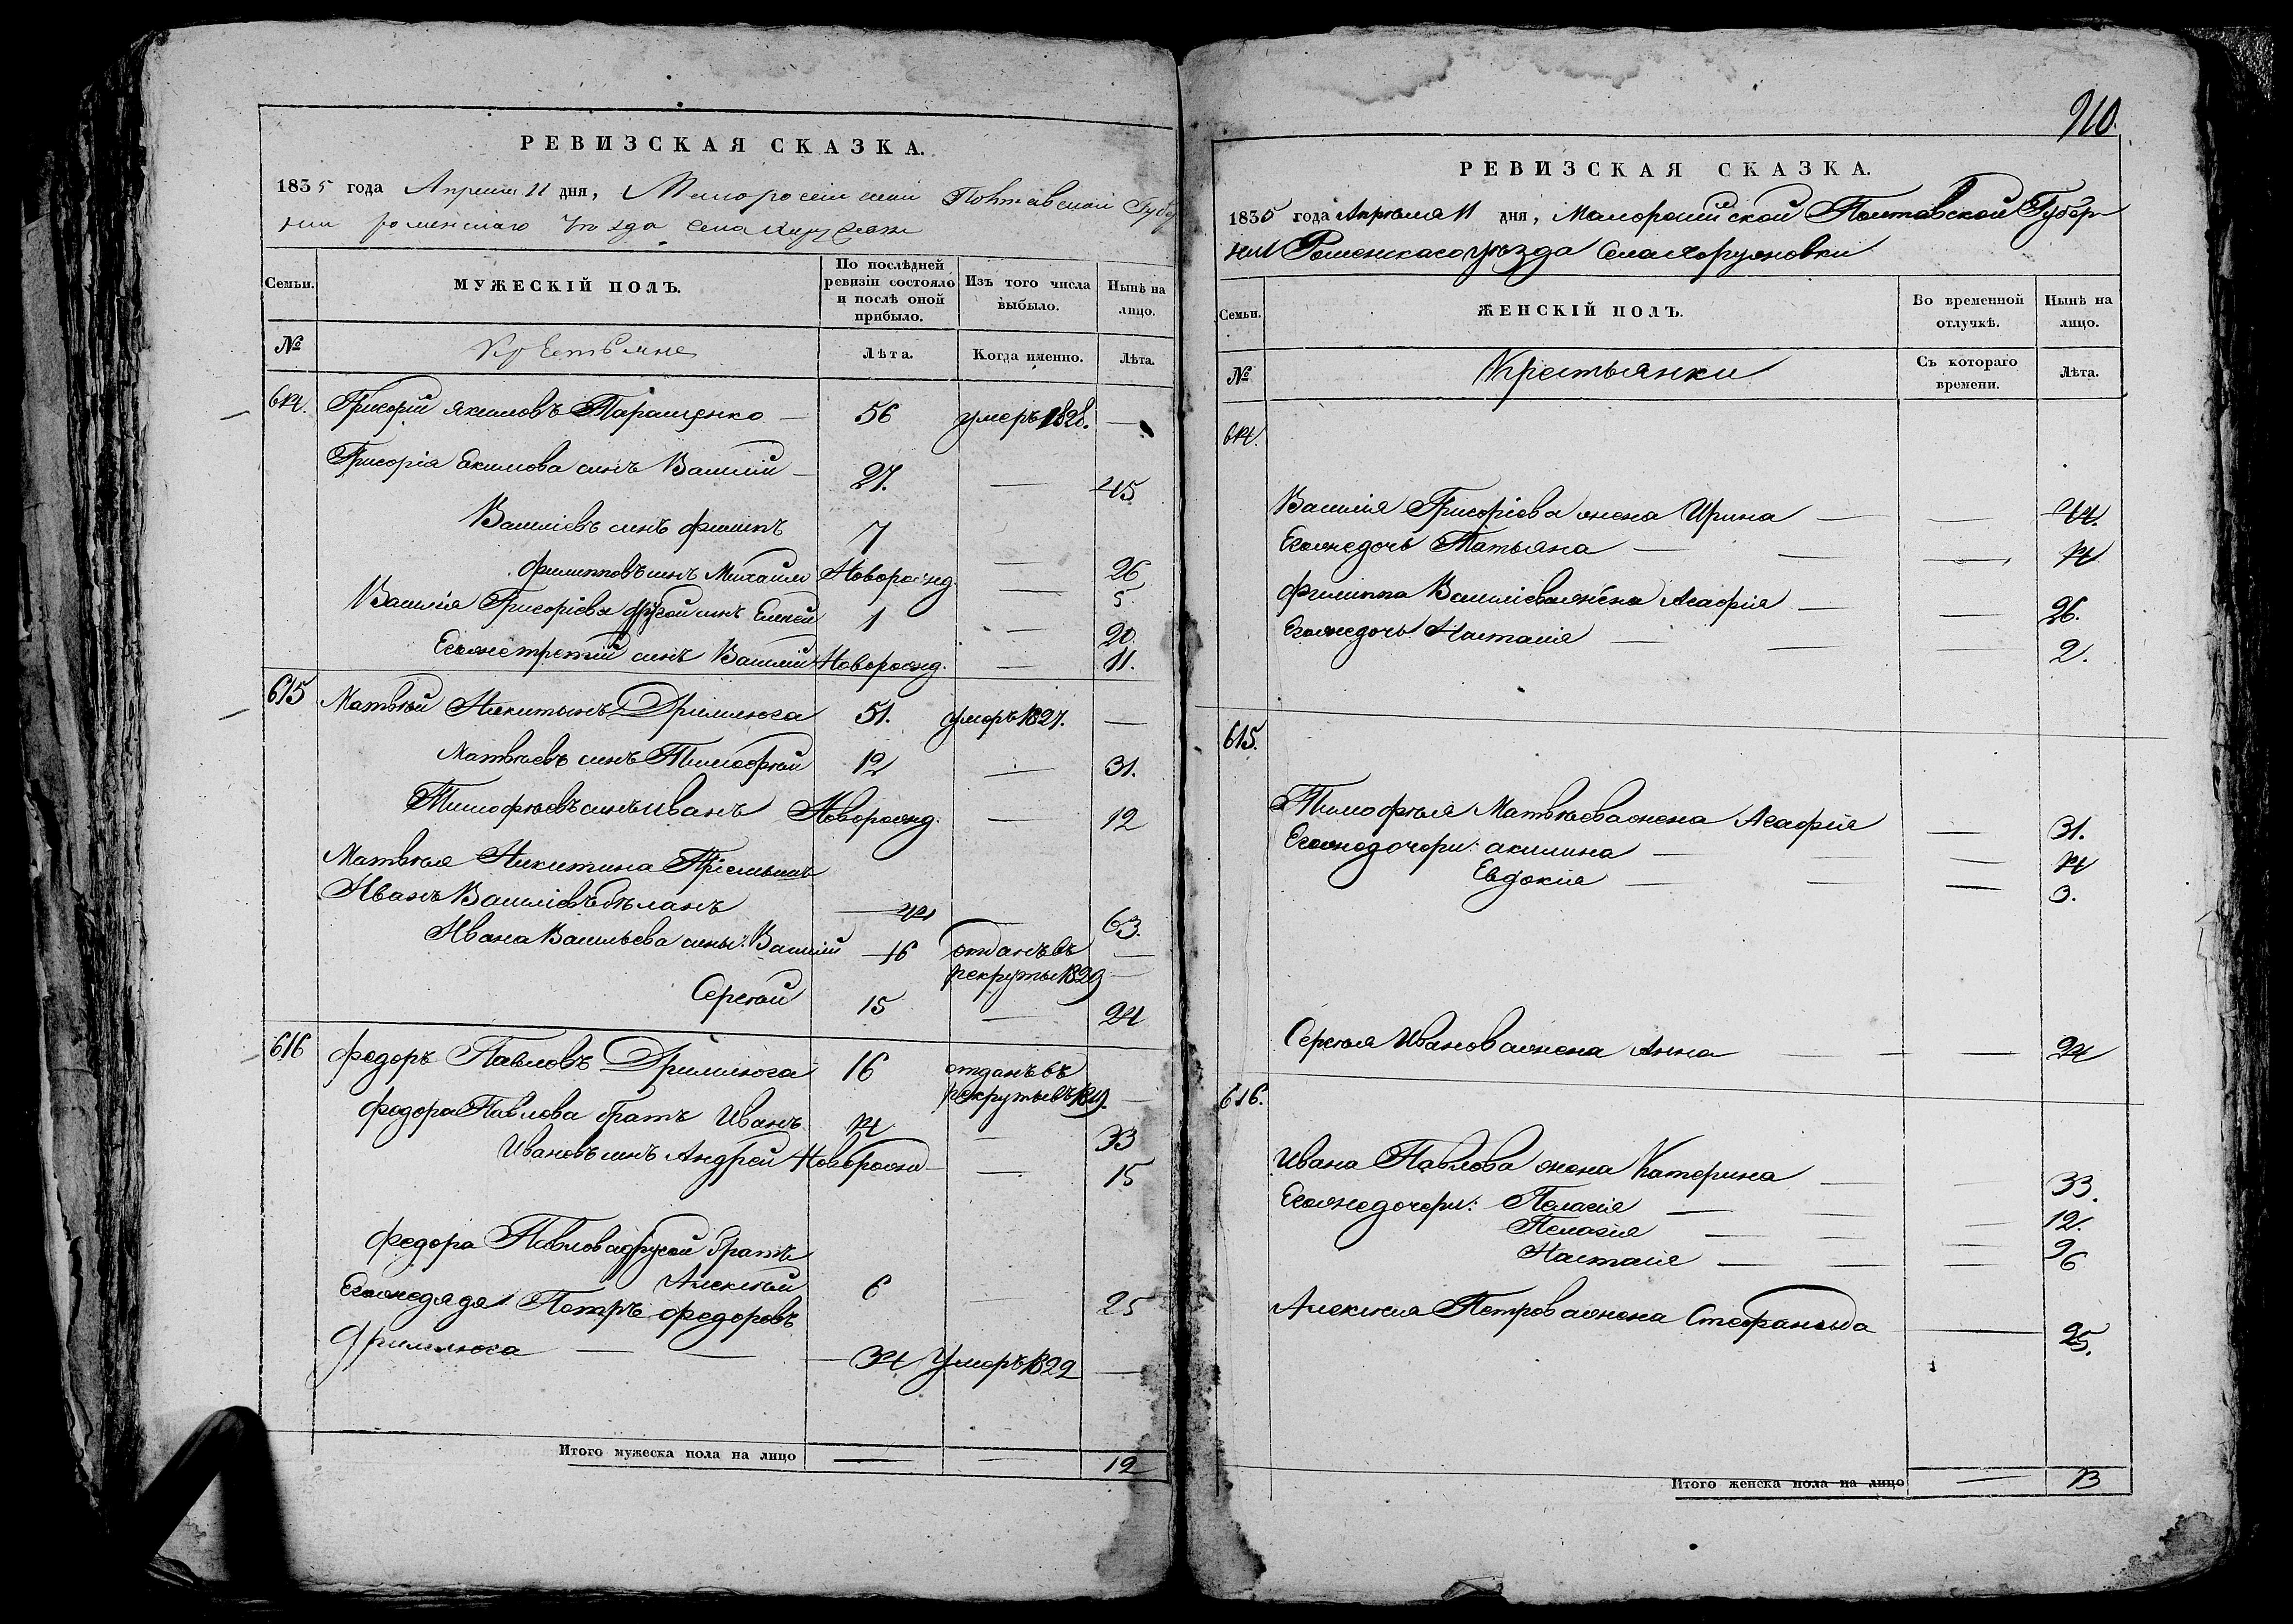 РЕВИЗСКАЯ СКАЗКА.
1835 года Апреля 11 дня, Малоросійской Полтавской Губер
нии роменскаго уезда села
Семьи.
МУЖЕСКІЙ ПОЛЪ.
По послѣдней ревизіи состояло и послѣ оной прибыло.
Изъ того числа выбыло.
Нынѣ на лицо.
№
Крестьяне
Лѣта.
Когда именно.
Лѣта.
614. Григорій Якимовъ Паращенко — 56 умеръ 1828. —
Григорія Екимова синъ Василій — 27. — 45
Василіевъ синъ Филипъ 7 — 26
Филиповъ синъ Михаилъ Новорожд. — 5
Василія Григоріева другой синъ Елисей 1 — 20
Егожетретій синъ Василій Новорожд. — 11.
615 Матвѣй Никитинъ Дрималюга 51. умеръ 1827. —
Матвѣевъ синъ Тимофѣй 12 — 31.
Тимофѣевъ синъ Иванъ Новорожд. — 12
Матвѣя Никитина Пріемышъ
Иванъ Василіевъ Бѣланъ — 44 — 63.
Ивана Васильева сины: Василій — 16 отданъ въ —
рекруты 1829 —
Сергѣй 15 — 24
616 Федоръ Павловъ Дрималюга 16 отданъ въ
рекруты въ —
Федора Павлова братъ Иванъ 14 — 33
Ивановъ синъ Андрей Новорожд — — 15
Федора Павлова другой братъ
Алексѣй 6 — 25
Егожедядя Петръ Федоровъ
Дрималюга — — — 34 Умеръ 1822 —
Итого мужеска пола на лицо — — 12
910.
РЕВИЗСКАЯ СКАЗКА.
1835 года Апрѣля 11 дня, Малороссійской Полтавской Губер
ніи Роменскаго уѣзда Села Хоружовки
Семьи.
ЖЕНСКІЙ ПОЛЪ.
Во временной отлучкѣ.
Нынѣ на лицо.
№
Крестьянки
Съ котораго времени.
Лѣта.
614.
Василія Григоріева жена Ирина — — 44.
Егожедочь Татьяна — — — 14
Филиппа Василіева жена Агафія — — 26.
Егожедочь Настасія — — — 2.
615.
Тимофѣя Матвѣева жена Агафія — 31.
Егожедочери: акилина — — — 14
Евдокія — — — 3.
Сергѣя Иванова жена Анна — — — 24
616.
Ивана Павлова жена Катерина — — 33.
Егожедочери: Пелагія — — — 12.
Пелагія — — — 9
Настасія — — — 6
Алексѣя Петрова жена Стефанида — 25.
Итого женска пола на лицо — 13